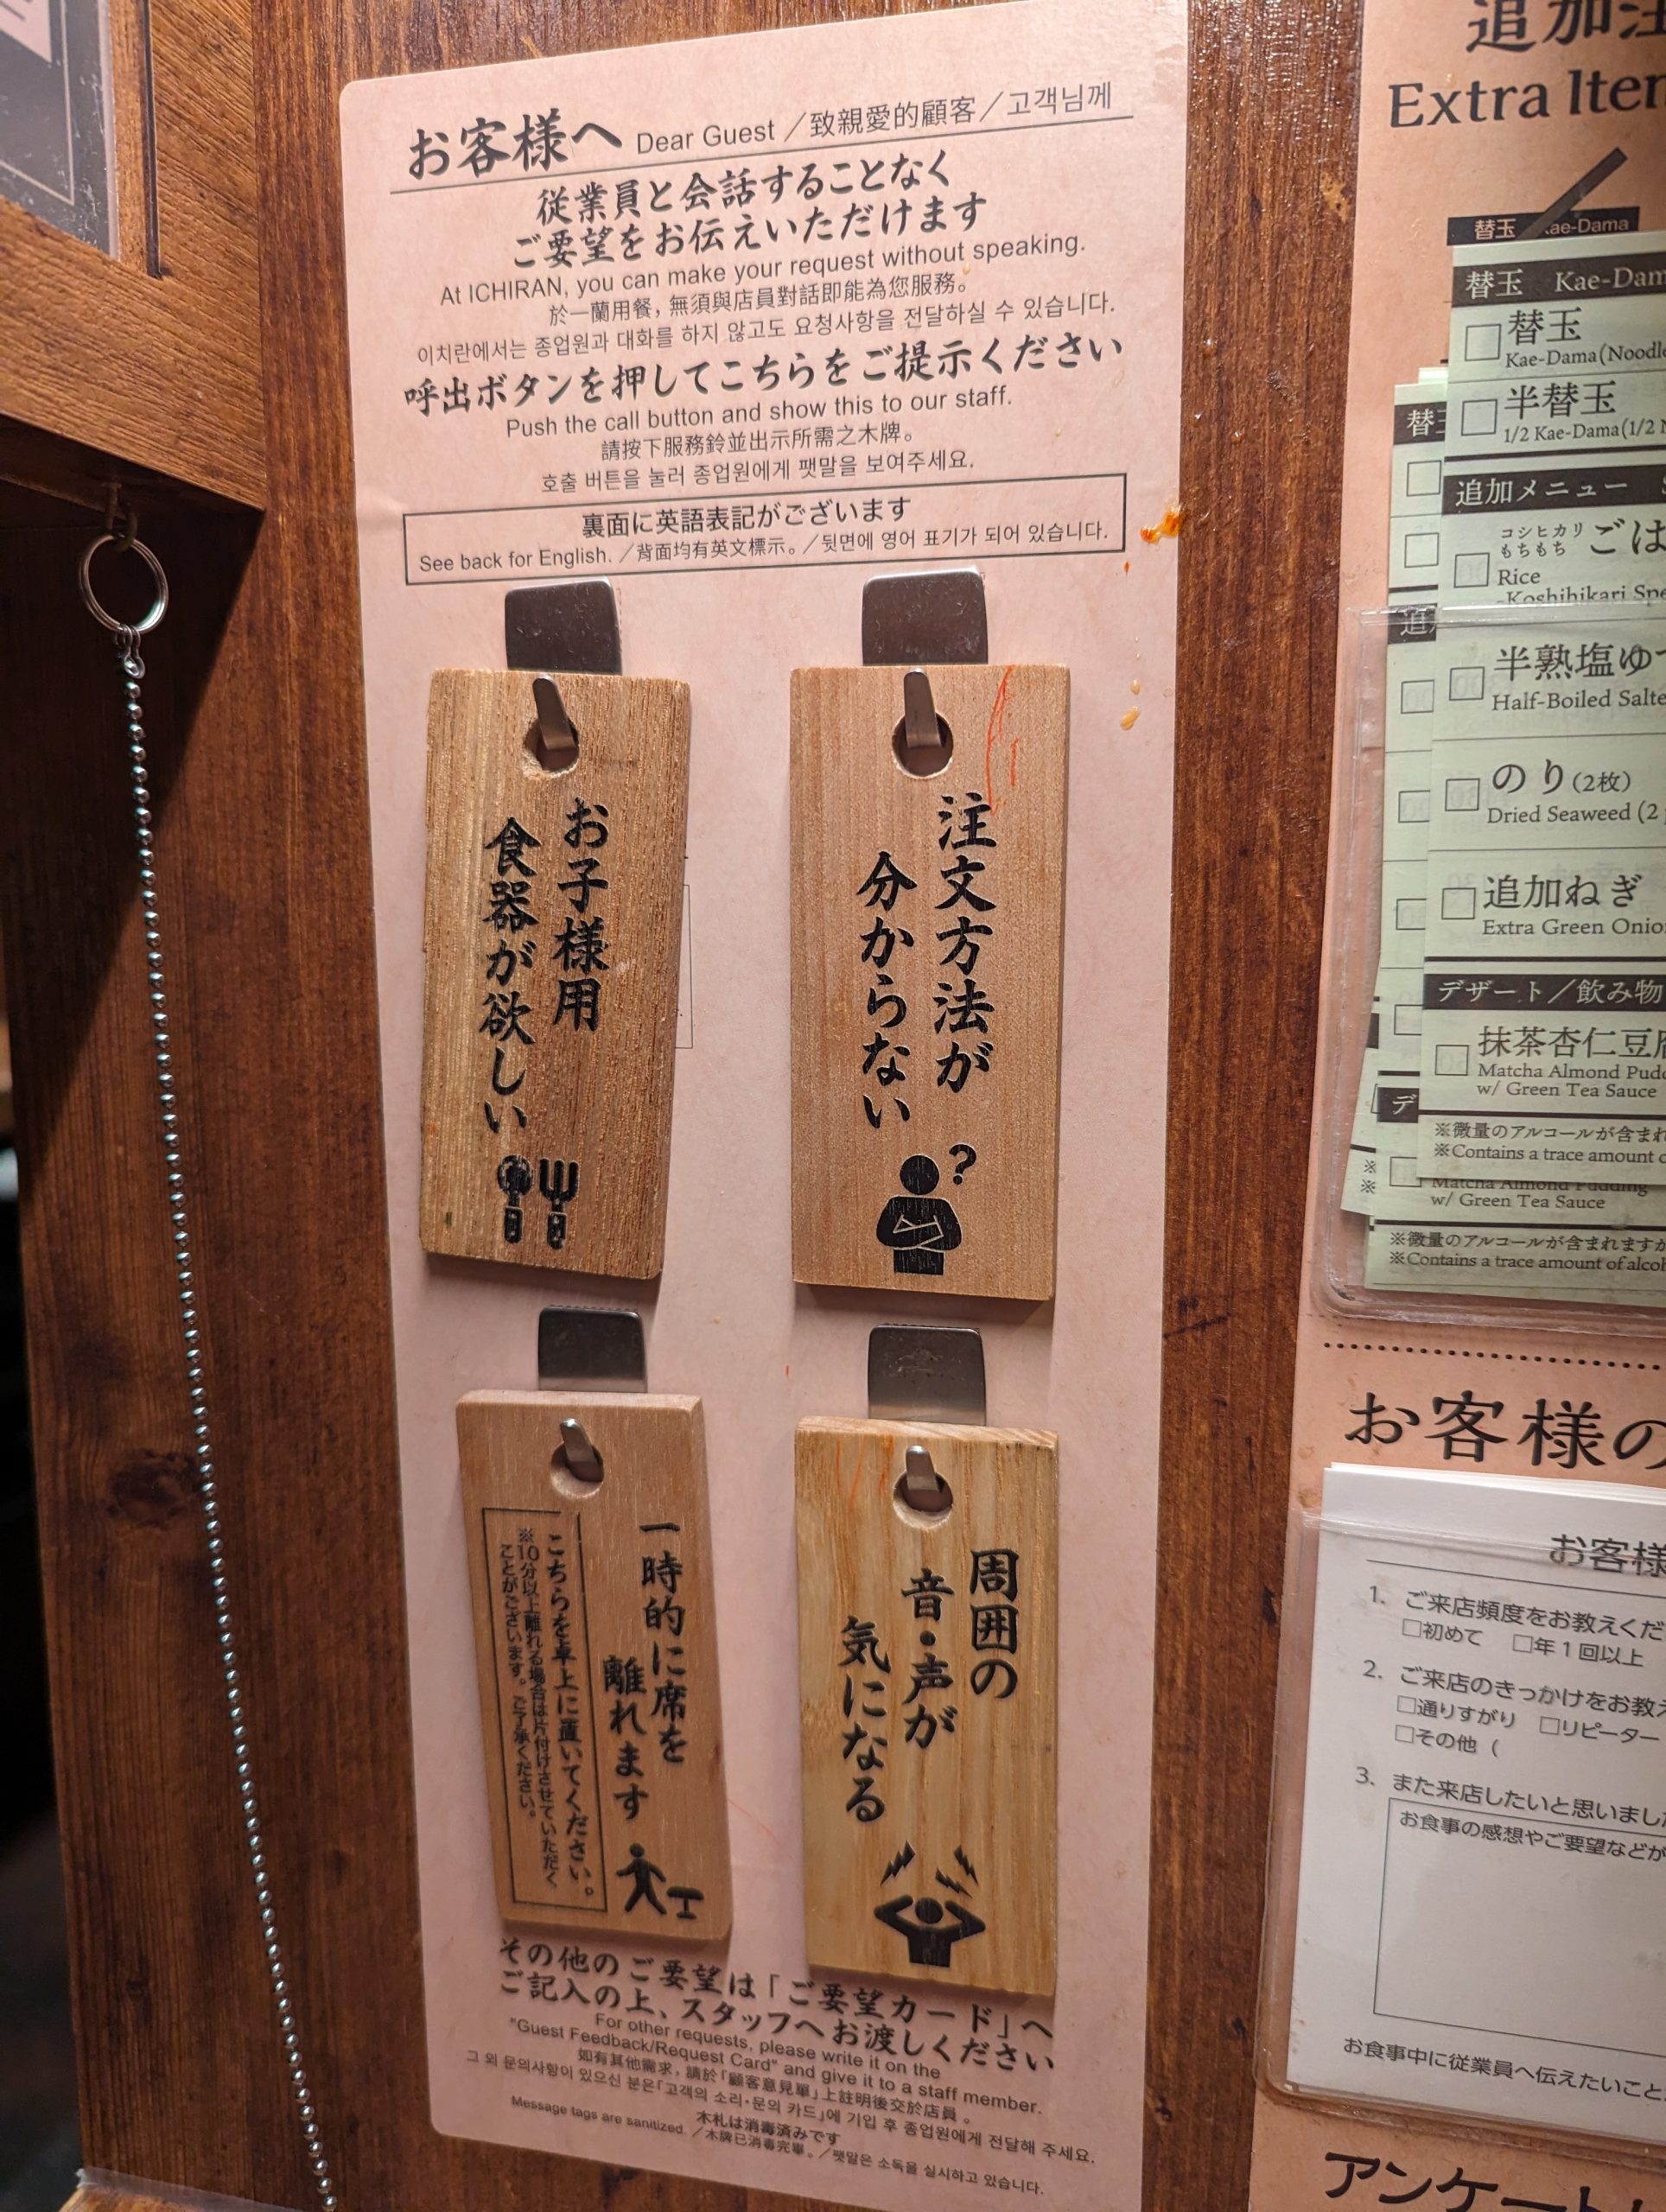 お客様へ Dear Guest ／致親愛的顧客／고객님께
従業員と会話することなく
ご要望をお伝えいただけます
At ICHIRAN, you can make your request without speaking.
於一蘭用餐，無須與店員對話即能為您服務。
이치란에서는 종업원과 대화를 하지 않고도 요청사항을 전달하실 수 있습니다.
呼出ボタンを押してこちらをご提示ください
Push the call button and show this to our staff.
請按下服務鈴並出示所需之木牌。
호출 버튼을 눌러 종업원에게 팻말을 보여주세요.
裏面に英語表記がございます
See back for English. ／背面均有英文標示。／뒷면에 영어 표기가 되어 있습니다.
お子様用
食器が欲しい
注文方法が
分からない
?
一時的に席を
離れます
こちらを卓上に置いてください。
※10分以上離れる場合は片付けさせていただく
ことがございます。ご了承ください。
周囲の
音・声が
気になる
その他のご要望は「ご要望カード」へ
ご記入の上、スタッフへお渡しください
For other requests, please write it on the
"Guest Feedback/Request Card" and give it to a staff member.
如有其他需求，請於「顧客意見單」上註明後交於店員。
그 외 문의사항이 있으신 분은「고객의 소리·문의 카드」에 기입 후 종업원에게 전달해 주세요.
木札は消毒済みです
Message tags are sanitized. ／木牌已消毒完畢。／팻말은 소독을 실시하고 있습니다.
追加注
Extra Iten
替玉 Kae-Dama
替玉 Kae-Dam
替玉
Kae-Dama(Noodle
半替玉
1/2 Kae-Dama(1/2 N
追加メニュー
コシヒカリ
もちもち ごは
Rice
-Koshihikari Spe
半熟塩ゆ
Half-Boiled Salte
のり(2枚)
Dried Seaweed (2
追加ねぎ
Extra Green Onio
デザート／飲み物
抹茶杏仁豆腐
Matcha Almond Pudd
w/ Green Tea Sauce
※微量のアルコールが含まれ
※Contains a trace amount o
Matcha Almond Pudding
w/ Green Tea Sauce
※微量のアルコールが含まれますが
※Contains a trace amount of alcoh
お客様の
お客様
1. ご来店頻度をお教えくだ
□初めて □年1回以上
2. ご来店のきっかけをお教え
□通りすがり □リピーター
□その他（
3. また来店したいと思いまし
お食事の感想やご要望などが
お食事中に従業員へ伝えたいこと
アンケート